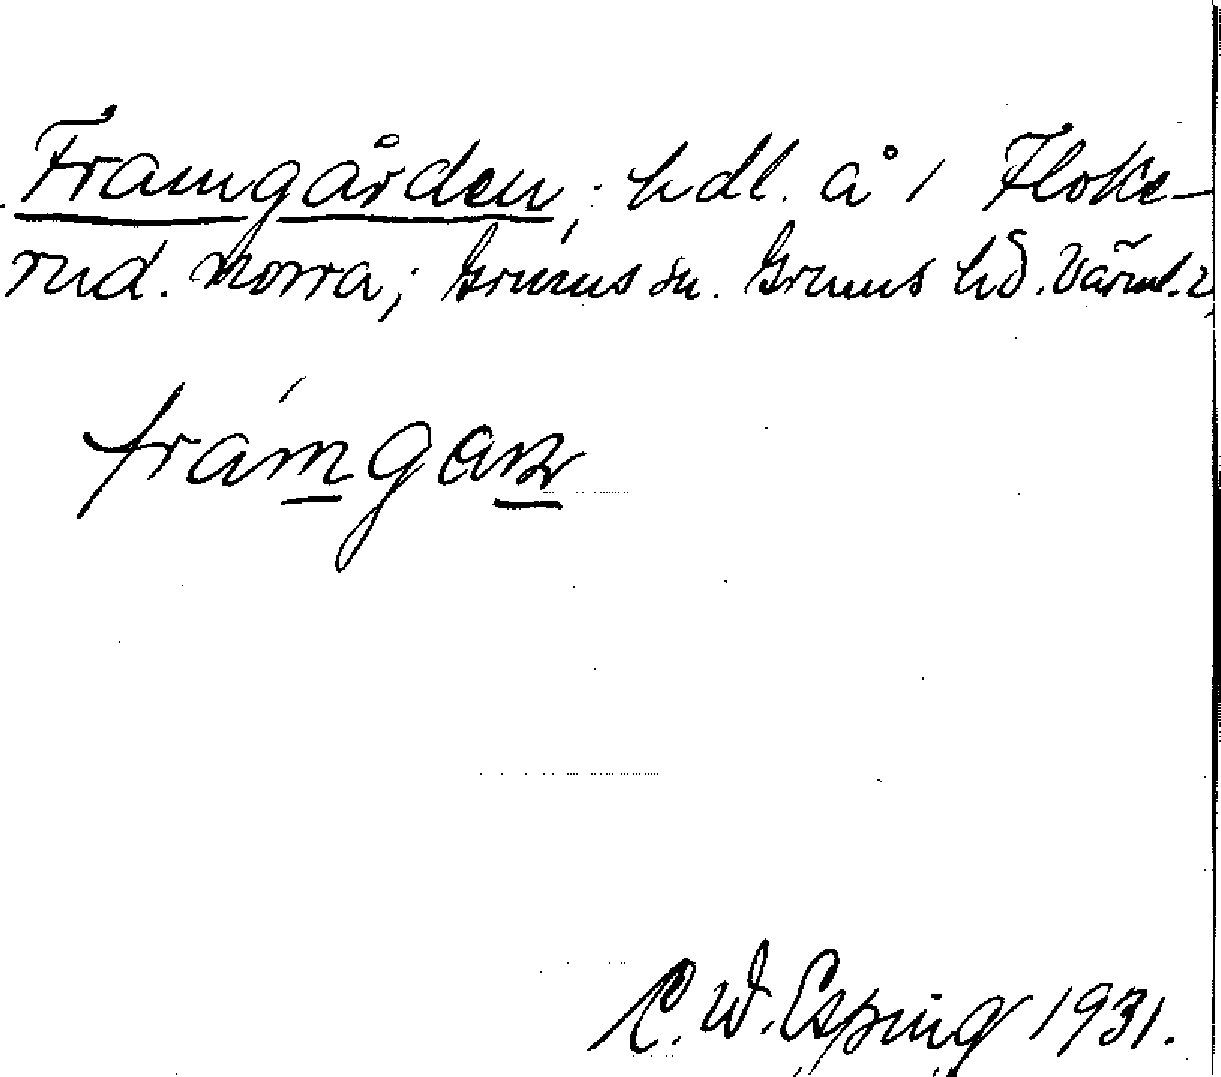 Framgården, hdl. å 1 Floke-
rud. Norra; Grums sn. Grums hd. Värml.
frámgaɳ
C. W. Esping 1931.